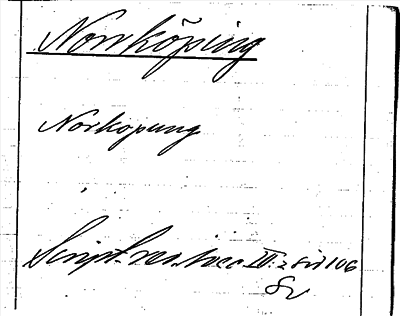 Norrköping
Norkopung
Script. rer. svec III: 2 sid 106
Sv